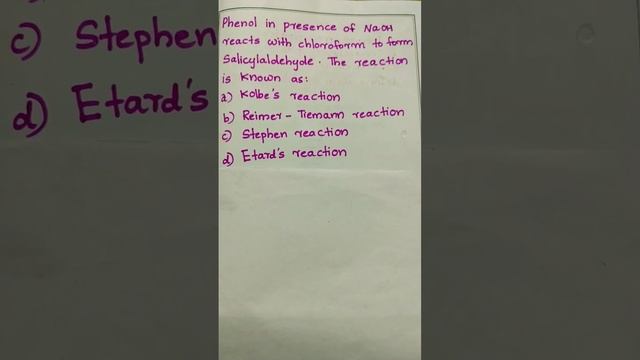 Phenol in presence of NaOH
reacts with chloroform to form
Salicylaldehyde. The reaction
is known as:
a) Kolbe's reaction
b) Reimer - Tiemann reaction
c) Stephen reaction
d) Etard's reaction
c) Stephen
d) Etard's